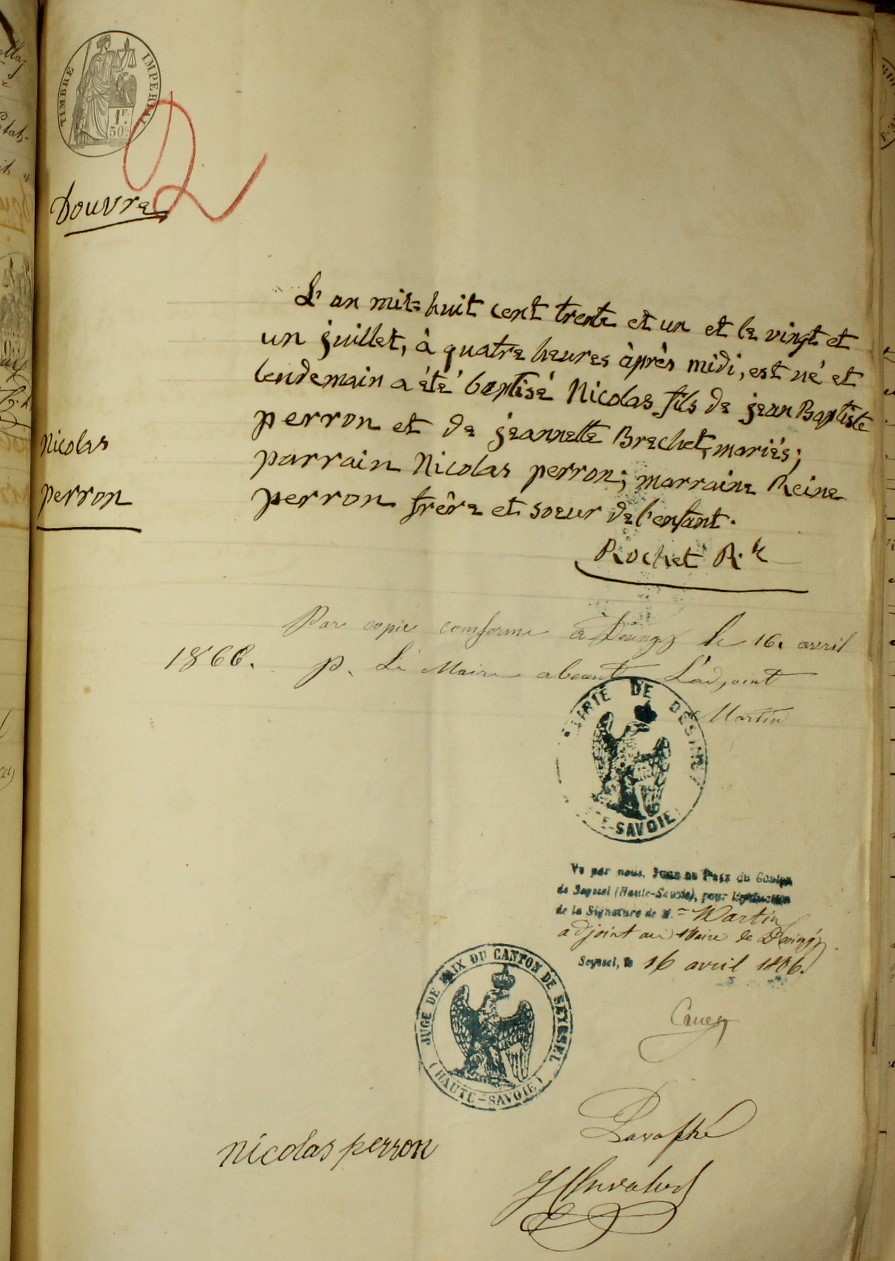 TIMBRE IMPERIAL
1F
50c
2
Douvre
L'an mil huit cent trente et un et le vingt et
un juillet, à quatre heures àprès midi, est né et
lendemain a été baptisé Nicolas fils de jean Baptiste
perron et de jeannette Brechet, mariés;
parrain Nicolas perron; marraine Reine
perron frêre et soeur de l'enfant.
Nicolas
perron
Rochet R.
Par copie conforme à le 16 avril
1866. p. Le Maire absent L'adjoint
Martin
MAIRIE DE
SAVOIE
Vu par nous, Juge de Paix du Canton
de Seyssel (Haute-Savoie), pour légalisation
de la Signature de M. Martin
adjoint au Maire de
Seyssel, le 16 avril
JUGE DE PAIX DU CANTON DE SEYSSEL
(HAUTE-SAVOIE)
Nicolas perron